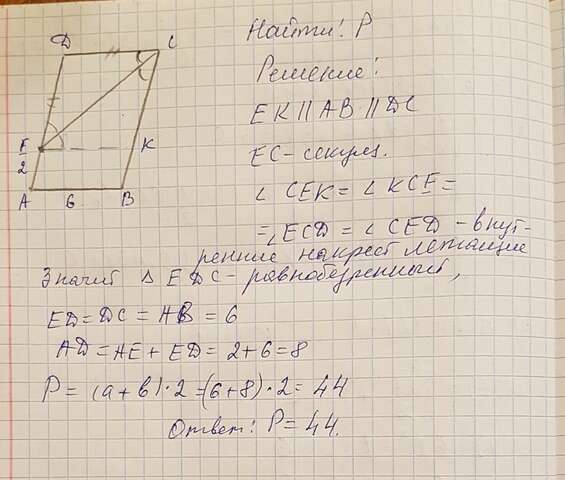 Найти: P
Решение:
EK || AB || DC
EC - секущ.
∠ CEK = ∠ KCE =
= ∠ ECD = ∠ CED - внут-
ренние накрест лежащие
Значит △ EDC - равнобедренный,
ED = DC = AB = 6
AD = AE + ED = 2 + 6 = 8
P = (a + b) · 2 = (6 + 8) · 2 = 44
Ответ: P = 44.
D C
E K
2
A 6 B